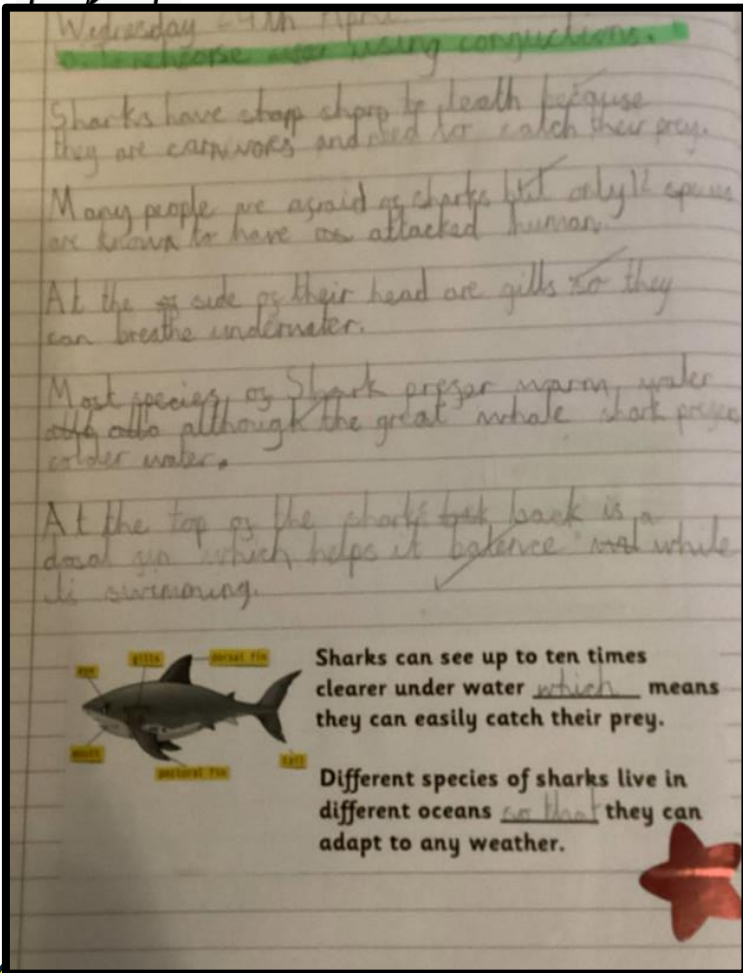 Wednesday 24th April
To rehearse using conjuctions.
Sharks have sharp teath because
they are carnivors and need to catch their prey.
Many people are agraid og sharks but only 12 species
are known to have attacked human.
At the side og their head are gills so they
can breathe underwater.
Most species og Shark preger warm water
although the great whale shark preger
colder water.
At the top og the shark's back is a
dosal gin which helps it balence while
it's swimming.
eye
gills
dorsal fin
mouth
pectoral fin
tail
Sharks can see up to ten times
clearer under water which means
they can easily catch their prey.
Different species of sharks live in
different oceans so that they can
adapt to any weather.